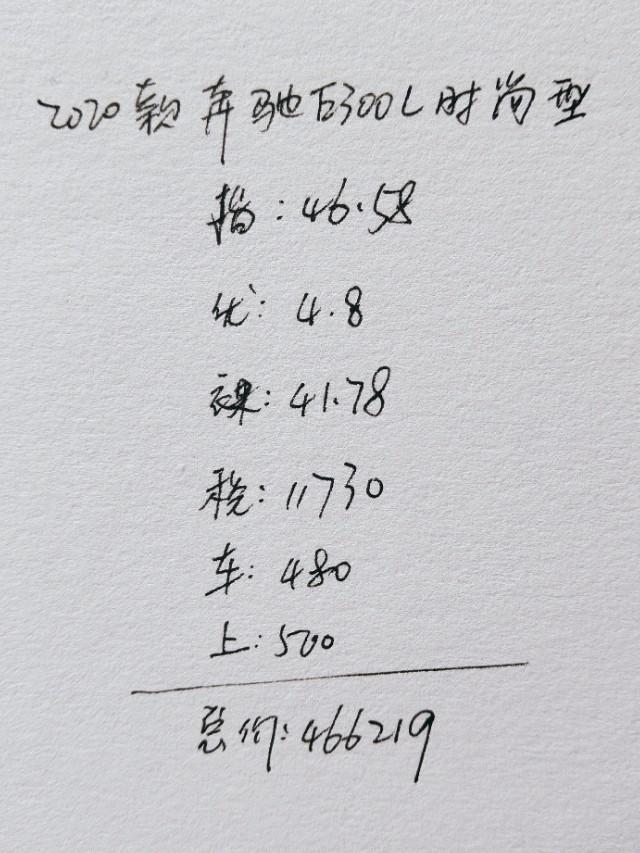 2020款奔驰E300L时尚型
指:46.58
优:4.8
裸:41.78
税:11730
车:480
上:500
总价:466219